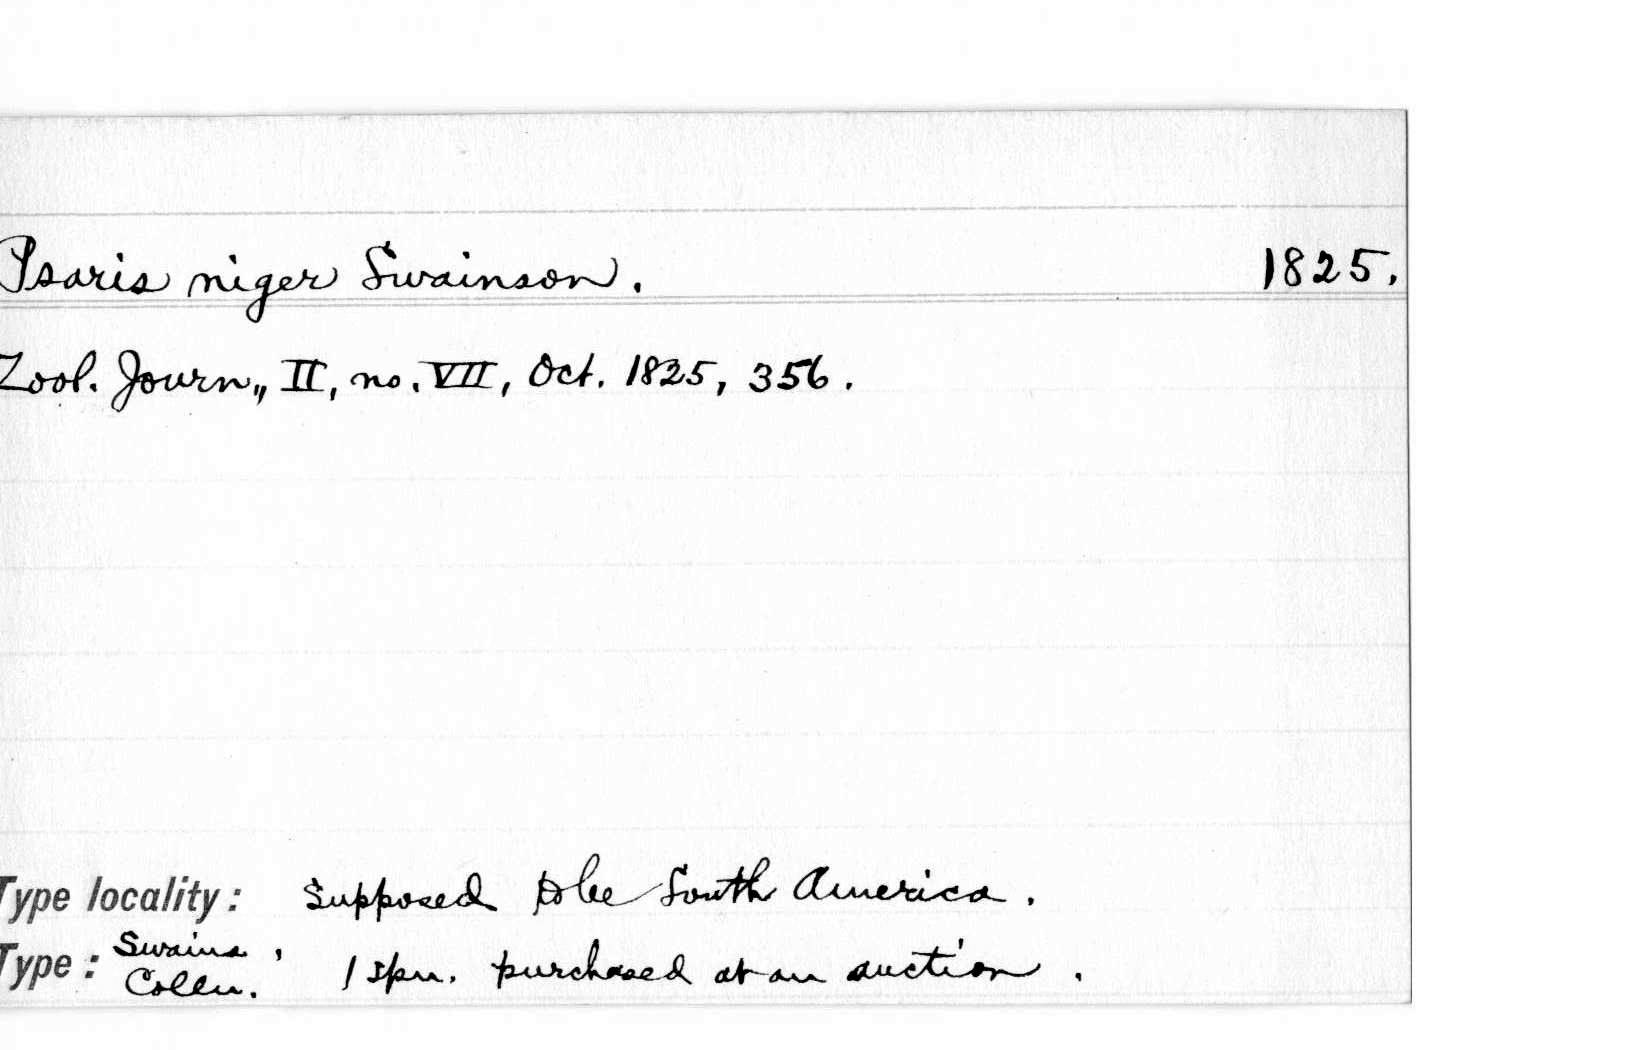 Psaris niger Swainson. 1825.
Zool. Journ., II, no. VII, Oct. 1825, 356.
Type locality: Supposed to be South America.
Type: Swains. Colln. 1 spn. purchased at an auction.